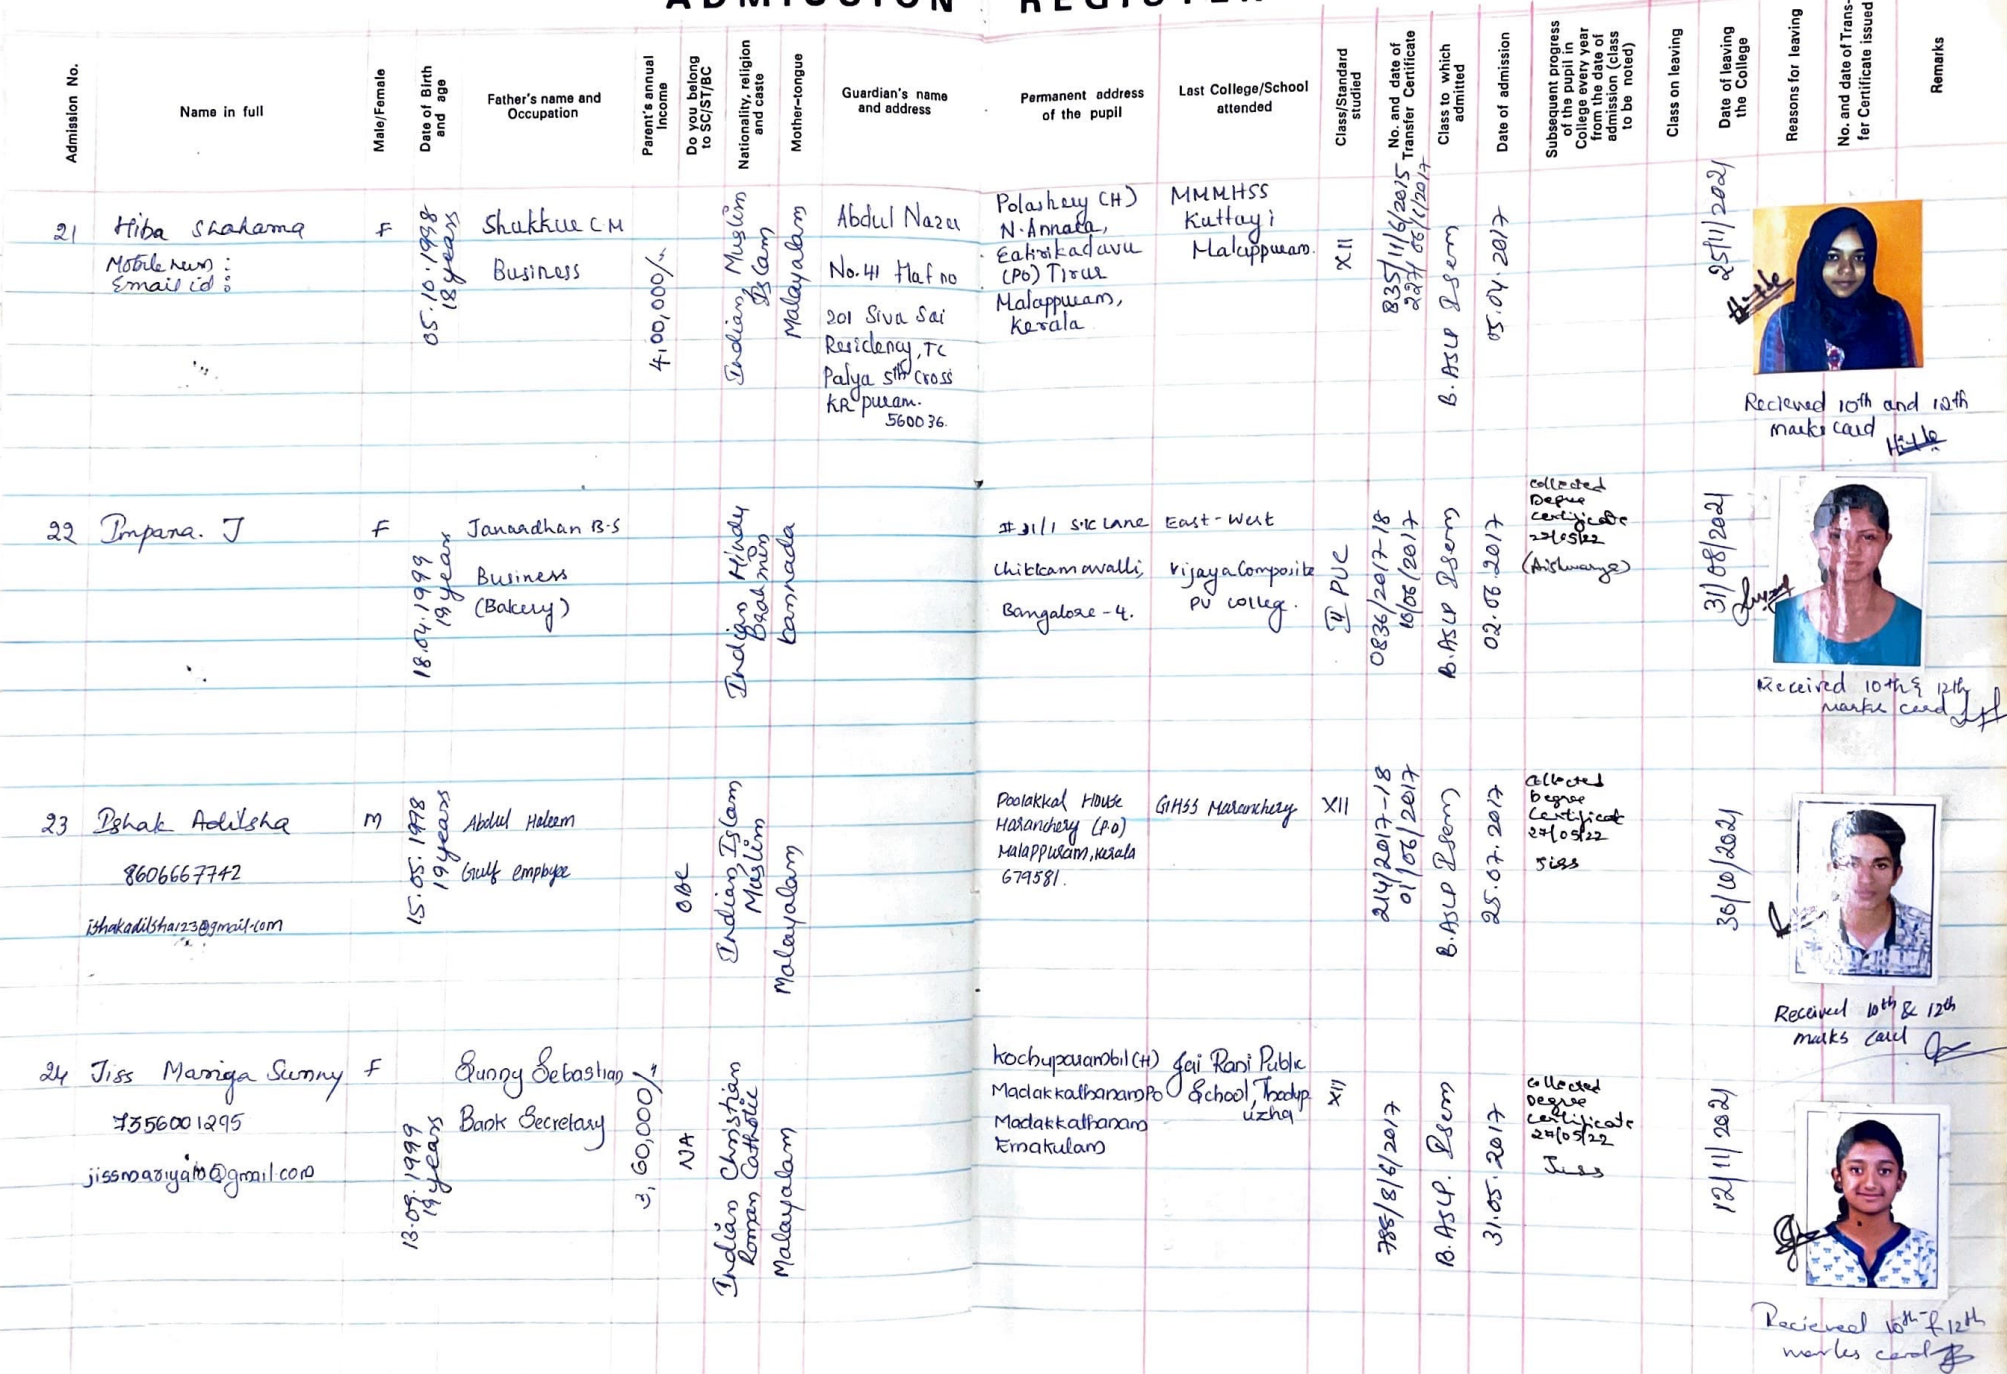 ADMISSION REGISTER
Admission No.
Name in full
Male/Female
Date of Birth
and age
Father's name and
Occupation
Parent's annual
Income
Do you belong
to SC/ST/BC
Nationality, religion
and caste
Mother-tongue
Guardian's name
and address
Permanent address
of the pupil
Last College/School
attended
Class/Standard
studied
No. and date of
Transfer Certificate
Class to which
admitted
Date of admission
Subsequent progress
of the pupil in
College every year
from the date of
admission (class
to be noted)
Class on leaving
Date of leaving
the College
Reasons for leaving
No. and date of Trans-
fer Certificate issued
Remarks
21
Hiba Shahama
Mobile num :
Email id :
F
05.10.1998
18 years
Shukkue C M
Business
4,00,000/-
Indian, Muslim
Islam
Malayalam
Abdul Nazu
No.41 Flat no
201 Siva Sai
Residency, TC
Palya 5th Cross
KR puram.
560036.
Polashery (H)
N. Annara,
(PO) Tirur
Malappuram,
Kerala
MMMHSS
Kuttayi
Malappuram.
XII
835/11/6/2015
B.ASLP I sem
05.04.2017
25/11/2021
Recieved 10th and 12th
marks card
22
Impana. J
F
18.04.1999
19 years
Janardhan B-S
Business
(Bakery)
Indian Hindu
Brahmin
kannada
#31/1 S.K Lane
Chikkamavalli,
Bangalore - 4.
East-West
Vijaya Composite
PU College.
II PUC
0836/2017-18
10/06/2017
B.ASLP I sem
02.06.2017
collected
Degree
certificate
27/05/22
(Aishwarya)
31/08/2021
Received 10th & 12th
marks card
23
Ishak Adilsha
8606667742
ishakadilsha123@gmail.com
M
15.05.1998
19 years
Abdul Haleem
Gulf employe
OBC
Indian, Islam
Muslim
Malayalam
Poolakkal House
Maranchery (P.O)
Malappuram, Kerala
679581.
GHSS Maranchery
XII
214/2017-18
01/06/2017
B.ASLP I sem
25.07.2017
collected
Degree
Certificat
27/05/22
Jiss
30/10/2021
Received 10th & 12th
marks card
24
Jiss Mariya Sunny
7356001295
F
13.09.1999
19 years
Sunny Sebastian
Bank Secretary
3,60,000/-
NA
Indian Christian
Roman Catholic
Malayalam
Kochuparambil (H)
Madakkathanam PO
Madakkathanam
Ernakulam
Jai Rani Public
School, Thodup
uzha
XII
788/8/6/2017
B.ASLP. I sem
31.05.2017
collected
Degree
certificate
27/05/22
Jiss
12/11/2021
Recieved 10th & 12th
marks card